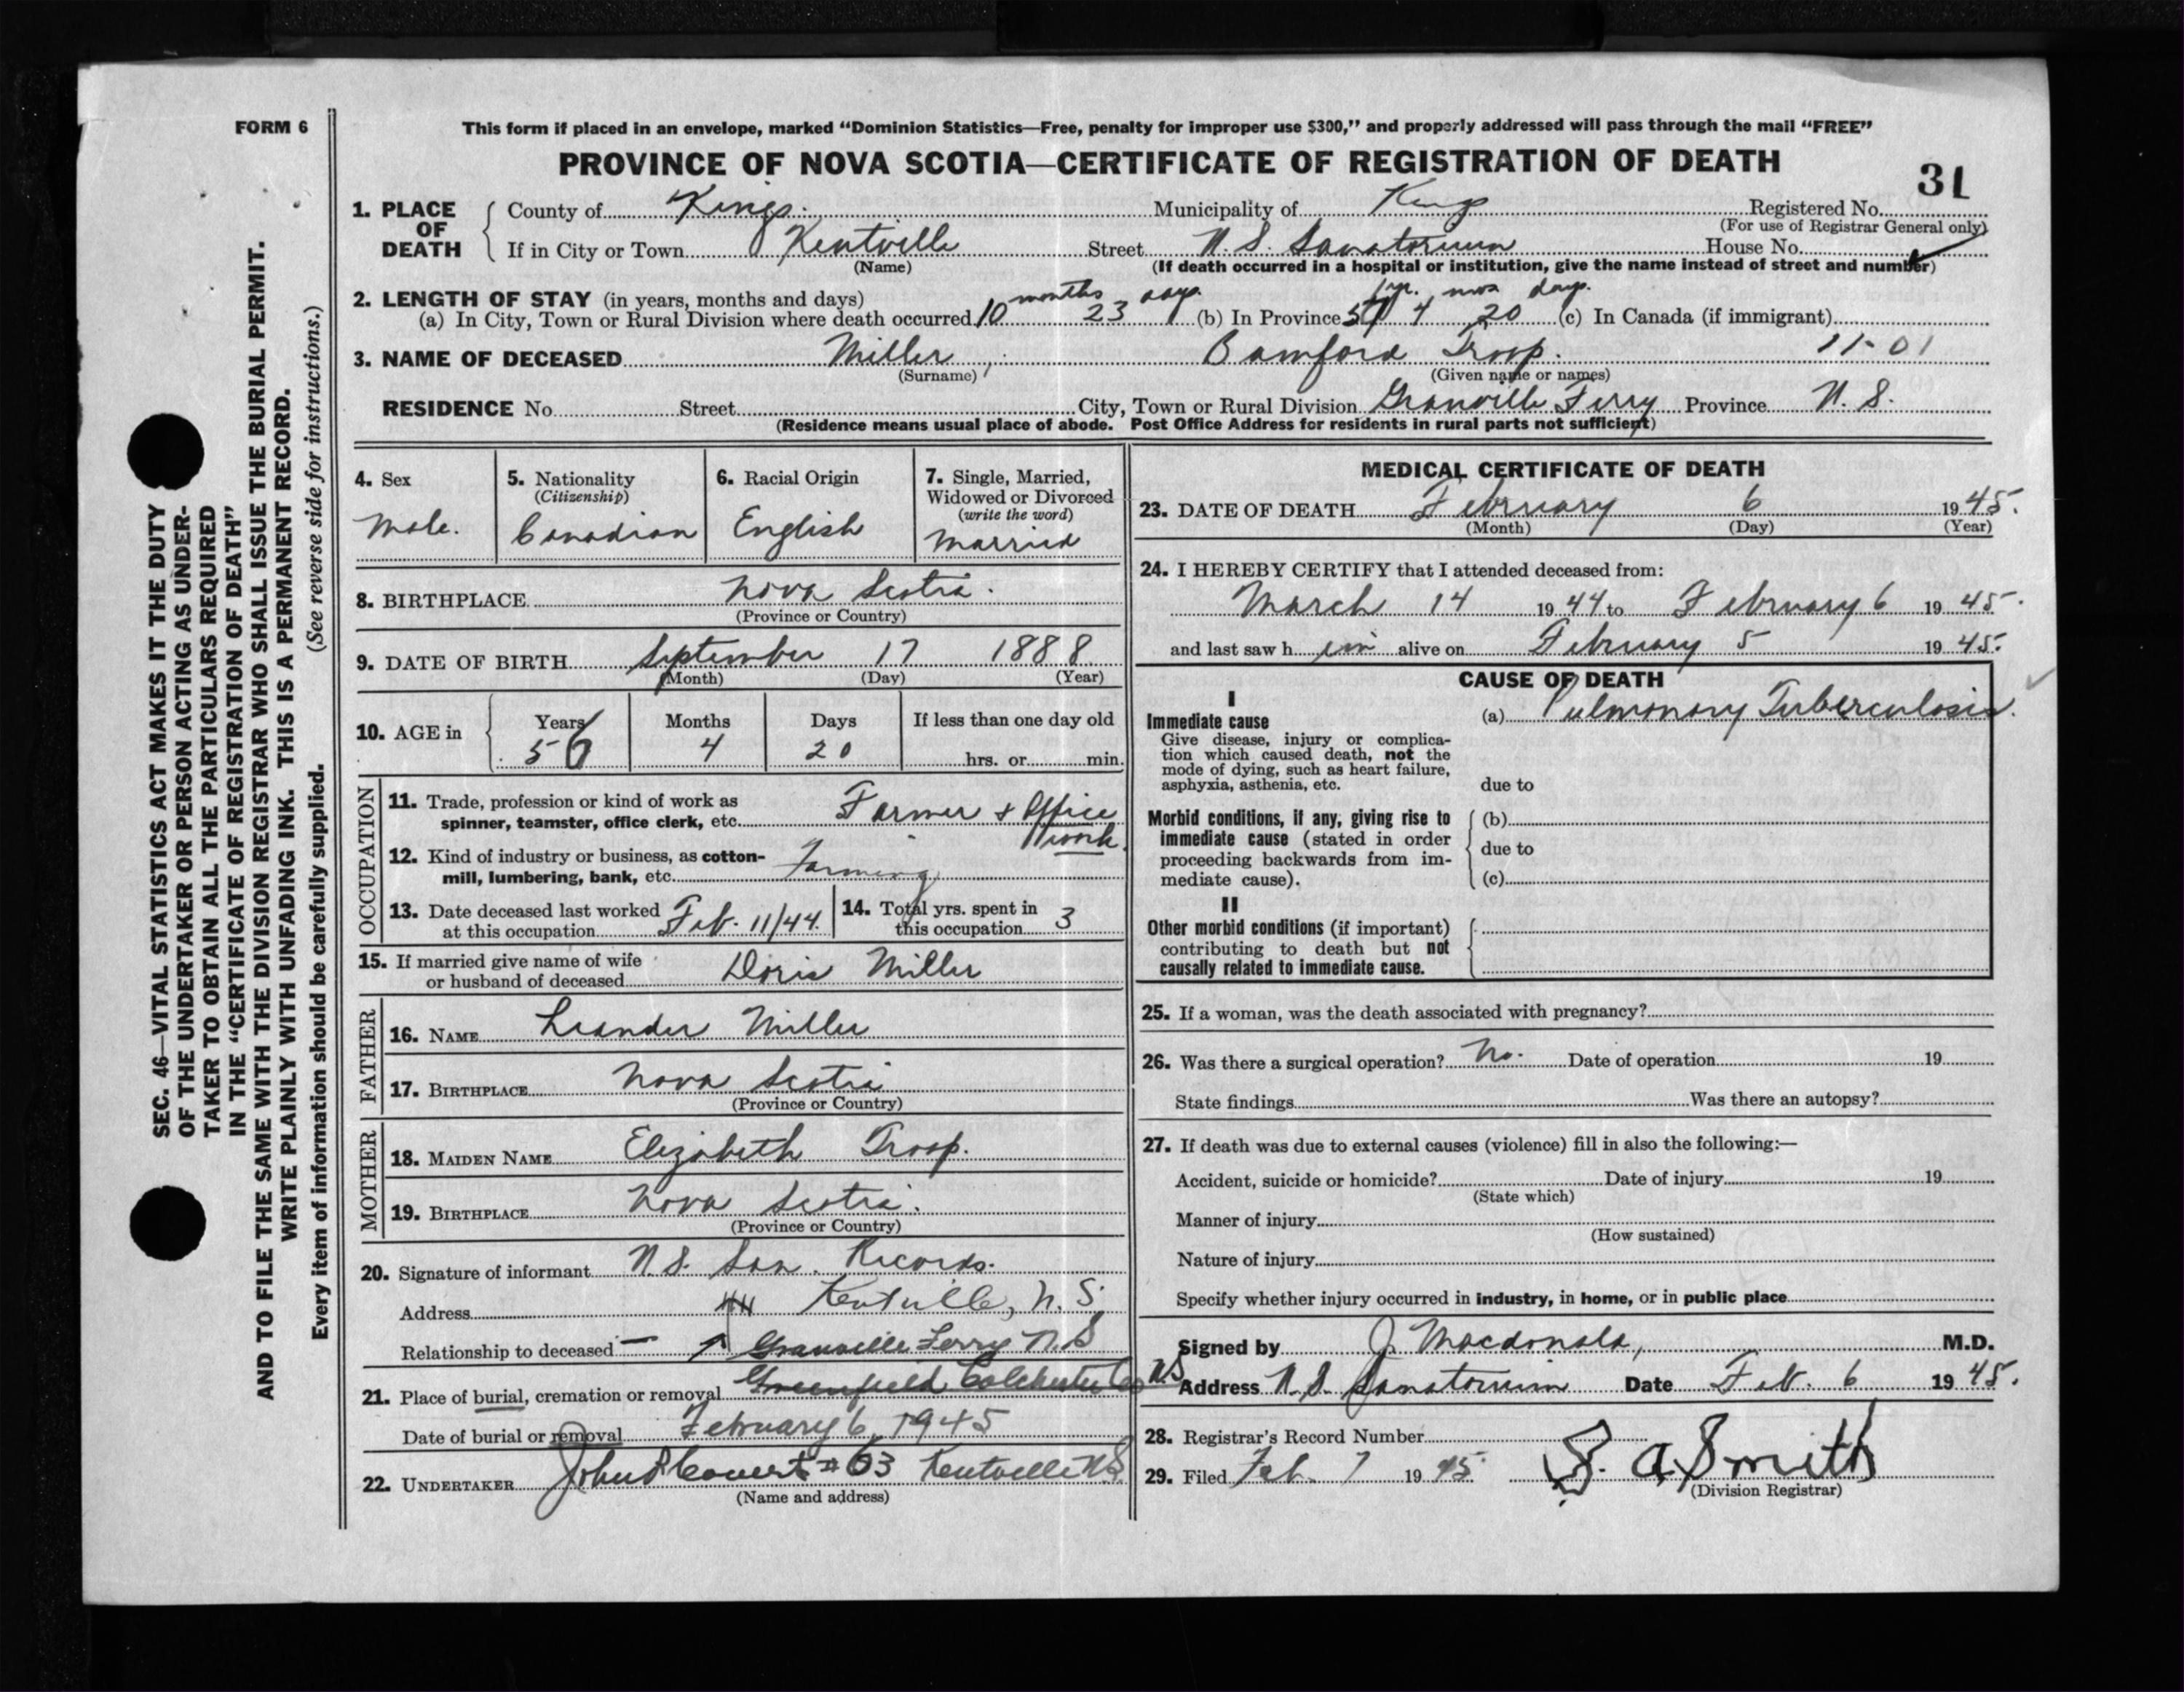 FORM 6
This form if placed in an envelope, marked “Dominion Statistics—Free, penalty for improper use $300,” and properly addressed will pass through the mail “FREE”
PROVINCE OF NOVA SCOTIA—CERTIFICATE OF REGISTRATION OF DEATH
31
1. PLACE OF DEATH County of Kings. Municipality of Kings Registered No.
(For use of Registrar General only)
If in City or Town Kentville Street N. S. Sanatorium House No.
(Name) (If death occurred in a hospital or institution, give the name instead of street and number)
2. LENGTH OF STAY (in years, months and days)
(a) In City, Town or Rural Division where death occurred 10 months 23 days. (b) In Province yr. 4 mos 20 days. (c) In Canada (if immigrant)
3. NAME OF DECEASED Miller, Bamford Troop. 11-01
(Surname) (Given name or names)
RESIDENCE No. Street City, Town or Rural Division Granville Ferry Province N. S.
(Residence means usual place of abode. Post Office Address for residents in rural parts not sufficient)
4. Sex Male.
5. Nationality (Citizenship) Canadian
6. Racial Origin English
7. Single, Married, Widowed or Divorced (write the word) Married
8. BIRTHPLACE Nova Scotia.
(Province or Country)
9. DATE OF BIRTH September 17 1888
(Month) (Day) (Year)
10. AGE in Years 56 Months 4 Days 20 If less than one day old hrs. or min.
OCCUPATION
11. Trade, profession or kind of work as
spinner, teamster, office clerk, etc. Farmer & Office work.
12. Kind of industry or business, as cotton-
mill, lumbering, bank, etc. Farming
13. Date deceased last worked at this occupation Feb. 11/44. 14. Total yrs. spent in this occupation 3
15. If married give name of wife
or husband of deceased Doris Miller
FATHER
16. NAME Leander Miller
17. BIRTHPLACE Nova Scotia
(Province or Country)
MOTHER
18. MAIDEN NAME Elizabeth Troop.
19. BIRTHPLACE Nova Scotia.
(Province or Country)
20. Signature of informant N. S. San. Records.
Address Kentville, N. S.
Relationship to deceased — Granville Ferry N.S
21. Place of burial, cremation or removal Greenfield Colchester Co N.S
Date of burial or removal February 6, 1945
22. UNDERTAKER #63 Kentville N.S.
(Name and address)
MEDICAL CERTIFICATE OF DEATH
23. DATE OF DEATH February 6 1945.
(Month) (Day) (Year)
24. I HEREBY CERTIFY that I attended deceased from:
March 14 1944 to February 6 1945.
and last saw him alive on February 5 1945.
CAUSE OF DEATH
I
Immediate cause (a) Pulmonary Tuberculosis.
Give disease, injury or complica-
tion which caused death, not the
mode of dying, such as heart failure,
asphyxia, asthenia, etc. due to
Morbid conditions, if any, giving rise to (b)
immediate cause (stated in order due to
proceeding backwards from im-
mediate cause). (c)
II
Other morbid conditions (if important)
contributing to death but not
causally related to immediate cause.
25. If a woman, was the death associated with pregnancy?
26. Was there a surgical operation? No. Date of operation 19
State findings Was there an autopsy?
27. If death was due to external causes (violence) fill in also the following:—
Accident, suicide or homicide? Date of injury 19
(State which)
Manner of injury
(How sustained)
Nature of injury
Specify whether injury occurred in industry, in home, or in public place
Signed by J. Macdonald, M.D.
Address N. S. Sanatorium Date Feb. 6 1945.
28. Registrar's Record Number
29. Filed Feb. 7 1945. S. A Smith
(Division Registrar)
SEC. 46—VITAL STATISTICS ACT MAKES IT THE DUTY
OF THE UNDERTAKER OR PERSON ACTING AS UNDER-
TAKER TO OBTAIN ALL THE PARTICULARS REQUIRED
IN THE “CERTIFICATE OF REGISTRATION OF DEATH”
AND TO FILE THE SAME WITH THE DIVISION REGISTRAR WHO SHALL ISSUE THE BURIAL PERMIT.
WRITE PLAINLY WITH UNFADING INK. THIS IS A PERMANENT RECORD.
Every item of information should be carefully supplied. (See reverse side for instructions.)